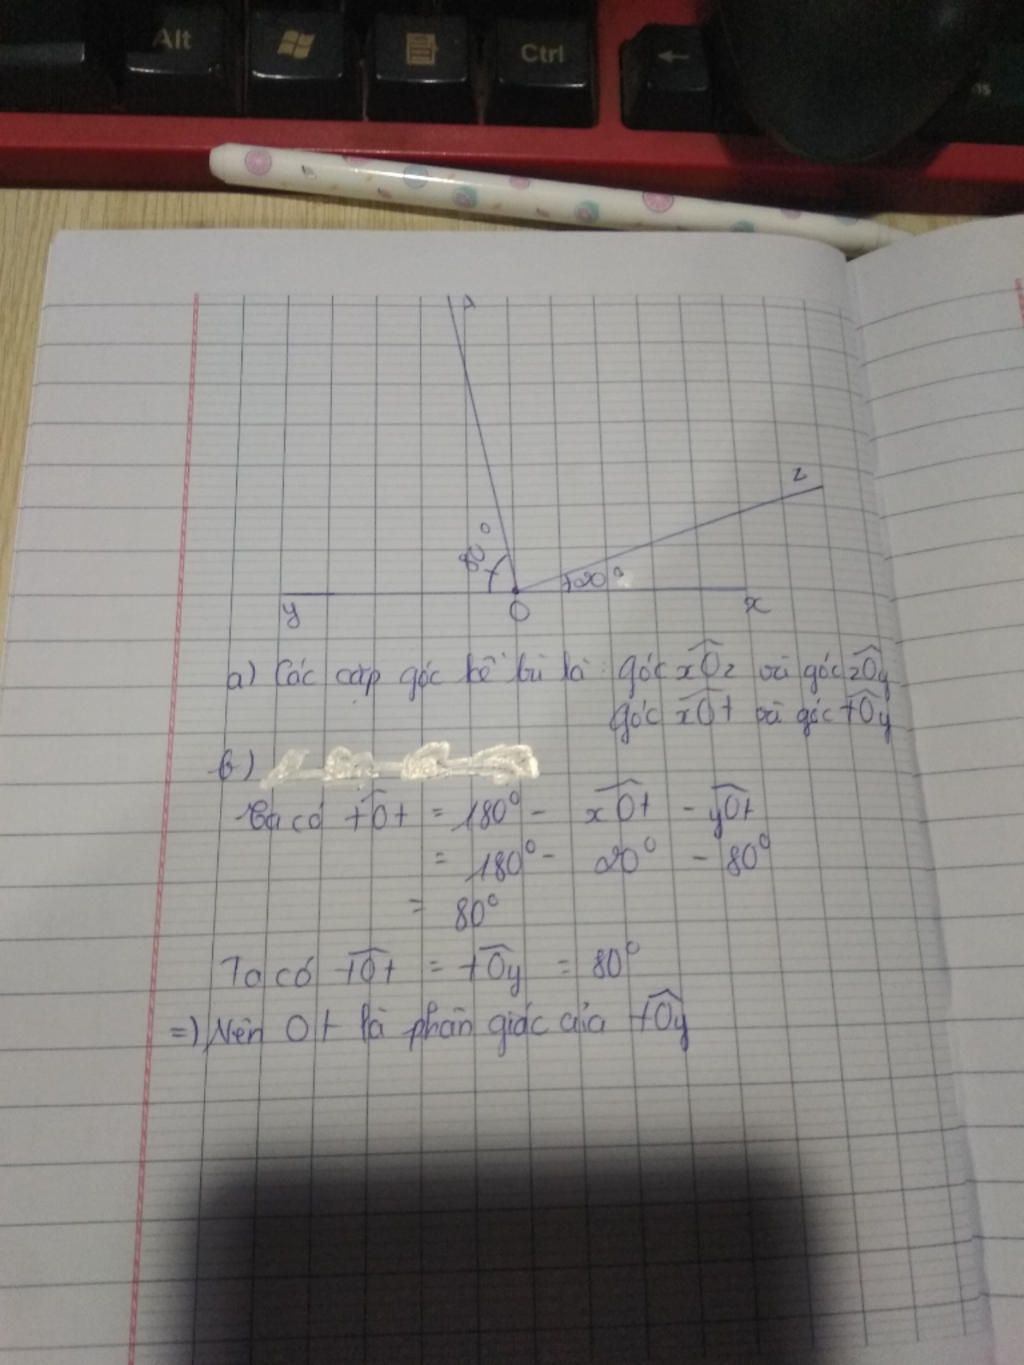 Alt
Ctrl
t
z
80°
20°
y
O
x
a) Các cặp góc kề bù là: góc xOz và góc zOy
góc xOt và góc tOy
b)
Ta có tOt = 180° - xOt - yOt
= 180° - 20° - 80°
= 80°
Ta có tOt = tOy = 80°
=) Nên Ot là phân giác của tOy